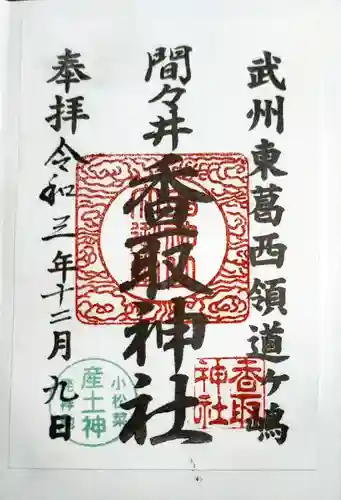 武州東葛西領道ヶ嶋
間々井
香取神社
奉拝 令和三年十二月九日
香取
神社
小松菜
産土神